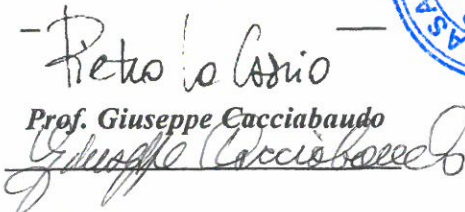 Pietro Lo Cascio
Prof. Giuseppe Cacciabaudo
Giuseppe Cacciabaudo
ASA